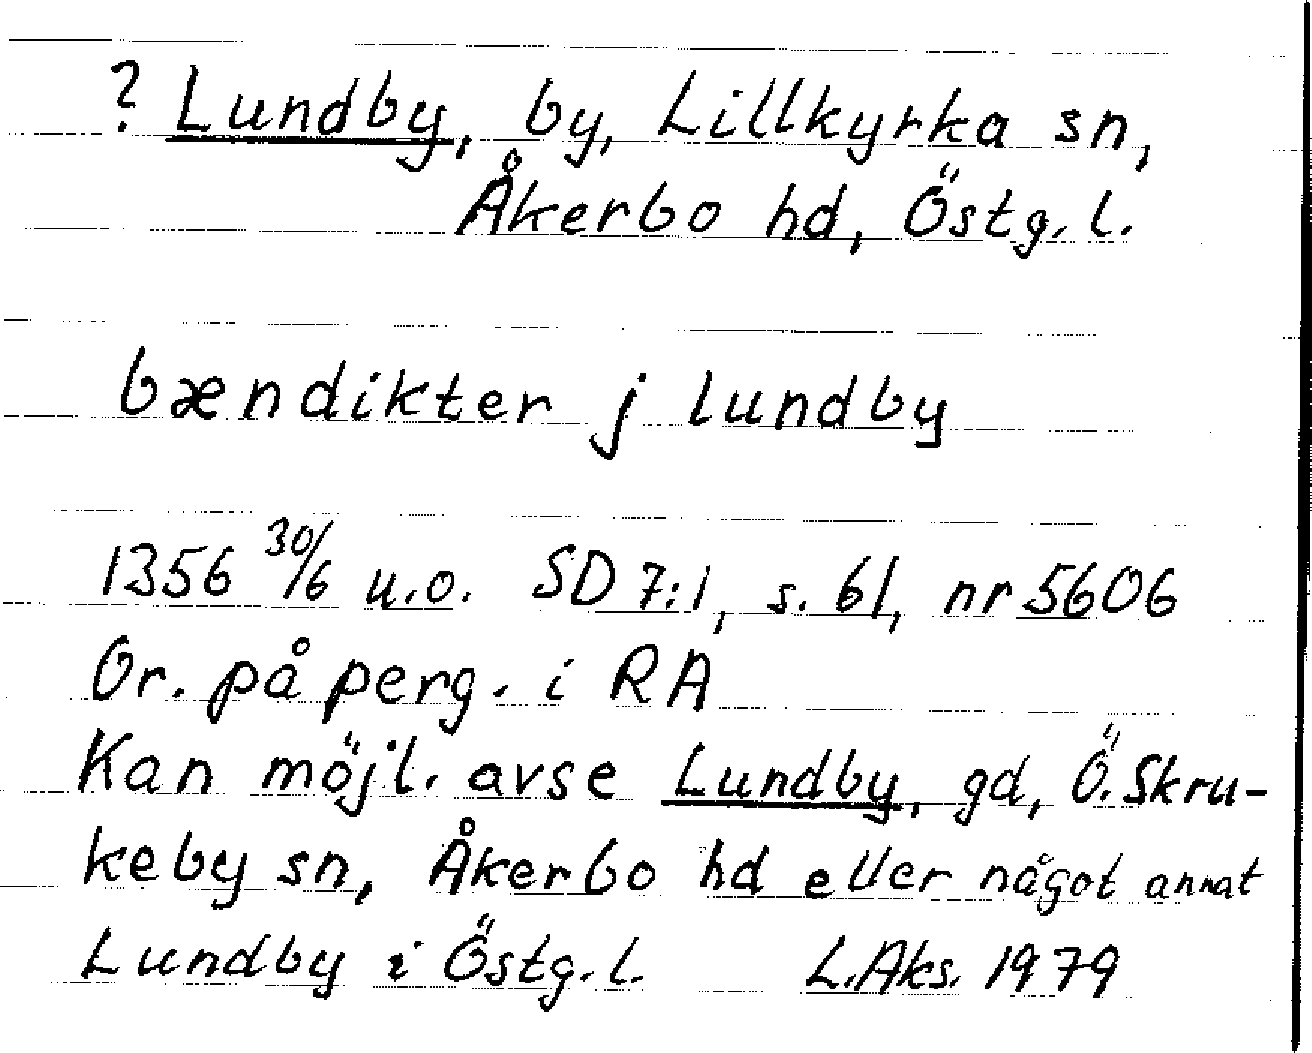 ? Lundby, by, Lillkyrka sn,
Åkerbo hd, Östg. l.
bændikter j lundby
1356 30/6 u.o. SD 7:1, s. 61, nr 5606
Or. på perg. i RA
Kan möjl. avse Lundby, gd, Ö. Skru-
keby sn, Åkerbo hd eller något annat
Lundby i Östg. l. L. Aks. 1979